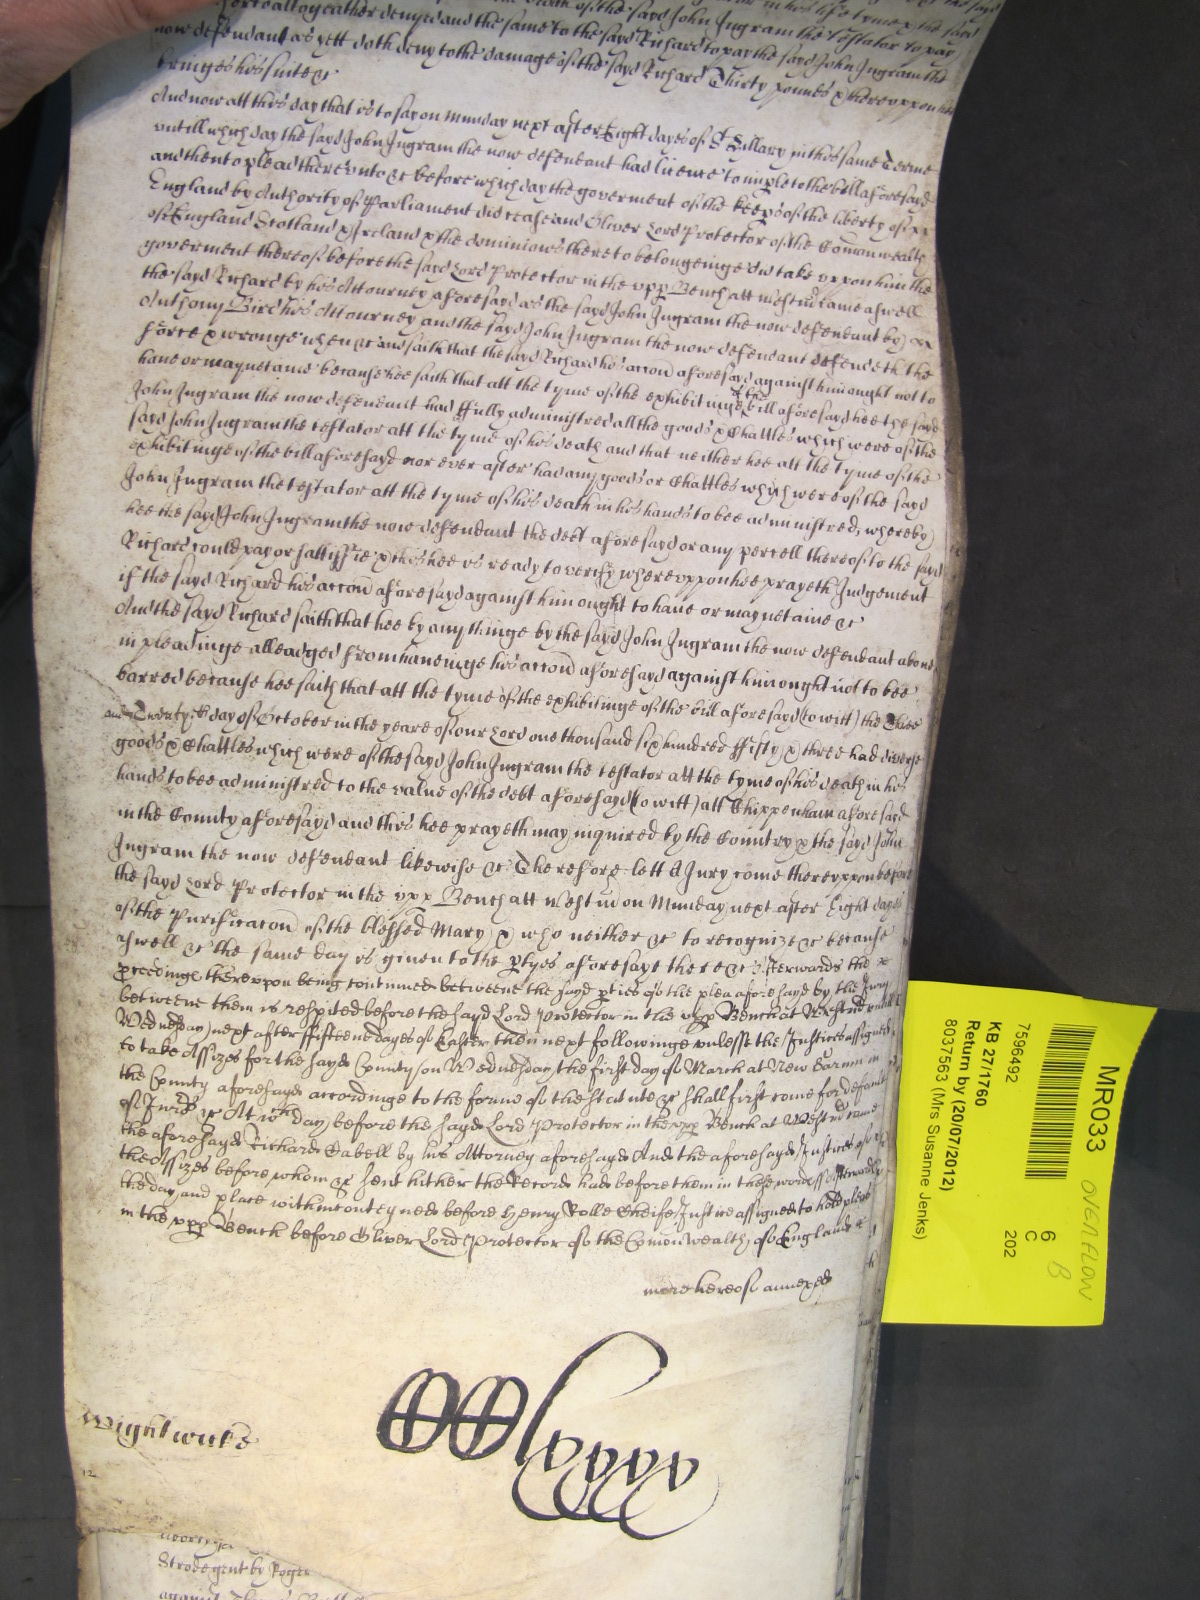 death of the sayd John Ingram the testator to pay
altogeather denyed and the same to the sayd Richard to pay the sayd John Ingram the
now defendant as yett doth deny to the damage of the sayd Richard Thirty pounes & thereuppon hee
bringes his suite &c
And now att this day that is to say on Munday next after Eight dayes of St Hillary in this same Terme
untill which day the sayd John Ingram the now defendant had licence to imple to the bill aforesayd
and then to plead thereunto &c before which day the goverment of the keeps of the liberty of
England by Authority of Parliament did cease and Oliver Lord Protector of the Comonwealth
of England Scotland & Ireland & the dominions thereto belongeinge did take uppon him the
goverment thereof before the sayd Lord Protector in the upp Bench att Westm came aswell
the sayd Richard by his Attourney aforesayd as the sayd John Ingram the now defendant by
Anthony Bird his Attourney and the sayd John Ingram the now defendant defendeth the
force & wronge when &c and saith that the sayd Richard his accon aforesayd against him ought not to
have or maynetaine because hee saith that att the tyme of the exhibitinge of the bill aforesayd hee the sayd
John Ingram the now defendant had ffully administred all the goods & Chattles which were of the
sayd John Ingram the testator att the tyme of his death and that neither hee att the tyme of the
exhibitinge of the bill aforesayd nor ever after had any goods or Chattles which were of the sayd
John Ingram the testator att the tyme of his death in his hands to bee administred, whereby
hee the sayd John Ingram the now defendant the debt aforesayd or any percell thereof to the sayd
Richard could pay or sattisfie & this hee is ready to verify whereuppon hee prayeth Judgement
if the sayd Richard his accon aforesayd against him ought to have or maynetaine &c
And the sayd Richard saith that hee by any thinge by the sayd John Ingram the now defendant above
in pleadinge alleadged from haveinge his accon aforesayd against him ought not to bee
barred because hee saith that att the tyme of the exhibitinge of the bill aforesayd (to witt) the three
and Twentyth day of October in the yeare of our Lord one thousand six hundred ffifty & three had diverse
goods & Chattles which were of the sayd John Ingram the testator att the tyme of his death in his
hands to bee administred to the value of the debt aforesayd (to witt) att Chippenham aforesayd
in the County aforesayd and this hee prayeth may inquired by the Country & the sayd John
Ingram the now defendant likewise &c Therefore lett A Jury come thereuppon before
the sayd Lord Protector in the upp Bench att Westm on Munday next after Eight dayes
of the Purificacon of the blessed Mary & who neither &c to recognize &c because
aswell &c the same day is given to the ptyes aforesaye there &c Afterwards the
proceedinge thereuppon being continued betweene the sayd pties of the plea aforesayd by the Jury
betweene them is respited before the sayd Lord Protector in the upp Bench at Westm untill
Wednesday next after ffifteene dayes of Easter then next followinge unlesse the Justices assigned
to take Assizes for the sayd County on Wednesday the first day of March at New Sarum in
the County aforesayd accordinge to the forme of the statute &c shall first come for default
of Jurs &c At wch day before the sayd Lord Protector in the upp Bench at Westm came
the aforesayd Richard Cabell by his Attorney aforesayd And the aforesayd Justices of
the Assizes before whom &c sent hither the Record had before them in these words Afterwards
the day and place within conteyned before Henry Rolle Cheife Justice assigned to hold pleas
in the upp Bench before Oliver Lord Protector of the Comonwealth of England &
more hereof annexed
Wightwicke
12
Strode gent by Roger
against
MR033
OVERFLOW
B
7596492
6
C
202
KB 27/1760
Return by (20/07/2012)
8037563 (Mrs Susanne Jenks)